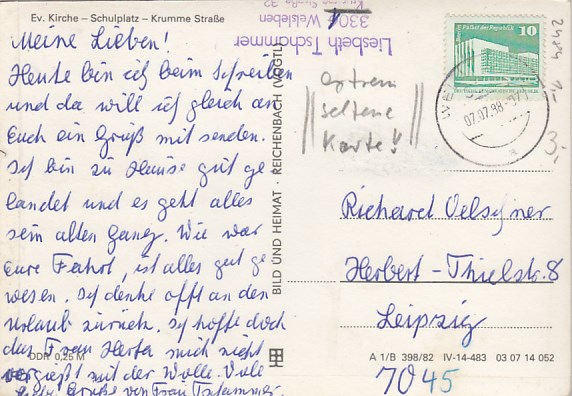 Ev. Kirche – Schulplatz – Krumme Straße
Meine Lieben!
Heute bin ich beim Schreiben
und da will ich gleich an
Euch ein Gruß mit senden.
Ich bin zu Hause gut ge
landet und es geht alles
sein alten Gang. Wie war
eure Fahrt, ist alles gut ge
wesen. Ich denke offt an den
Urlaub zurück. Ich hoffe doch
das Frau Herta mich nicht
vergießt mit der Wolle. Viele
liebe Grüße von Frau Tschammer.
DDR 0,25 M
BILD UND HEIMAT · REICHENBACH (VOGTL)
Liesbeth Tschammer
330 Welsleben
extrem
seltene
Karte!!
10
07.07.88
2484
1,-
3,-
Richard Oelschner
Herbert-Thielstr. 8
Leipzig
7045
A 1/B 398/82 IV-14-483 03 07 14 052